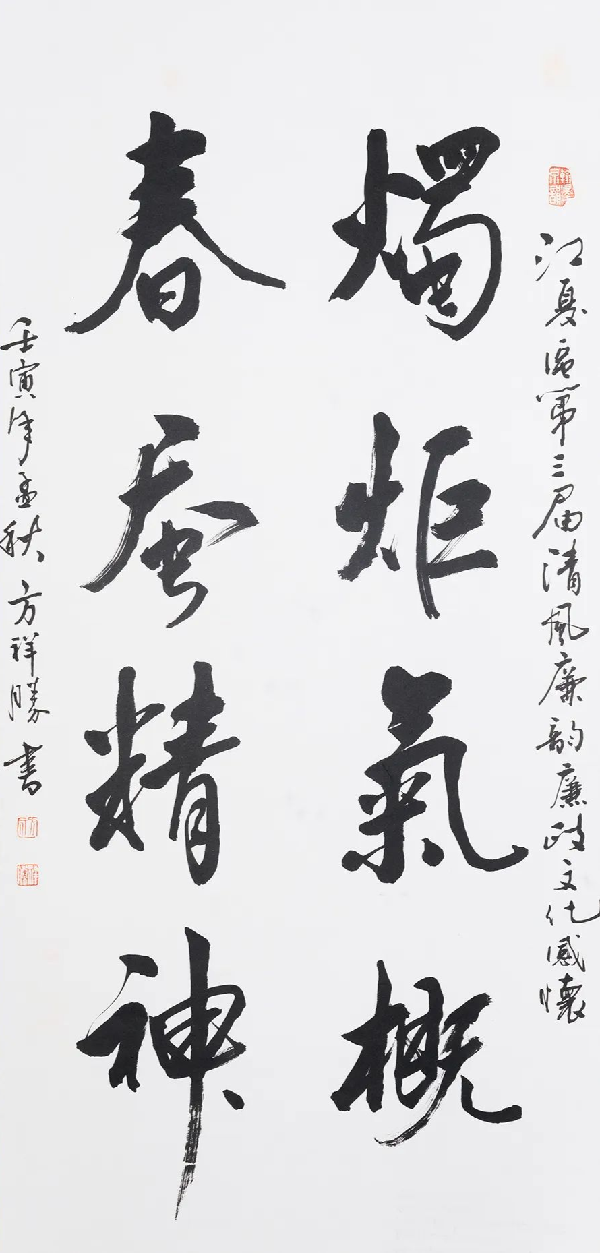 江夏區第三届清風廉韵廉政文化感懷
燭炬氣概
春蚕精神
壬寅年孟秋方祥勝书